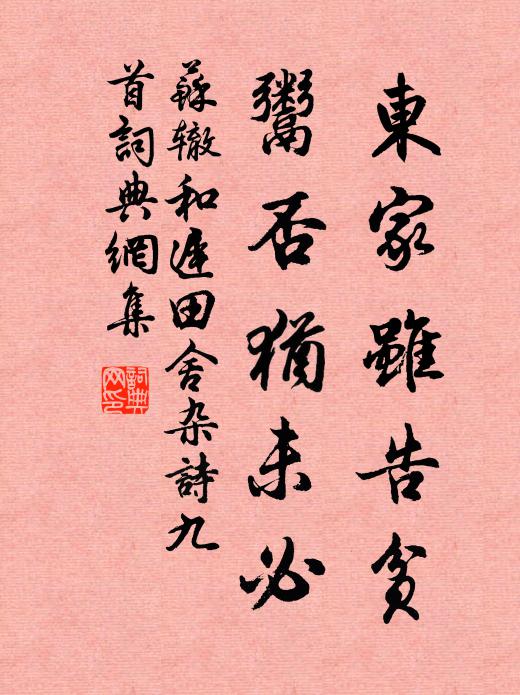 東家雖告貧
鬻否猶未必
蘇辙和遲田舍杂詩九
首詞典網集
詞典
网印